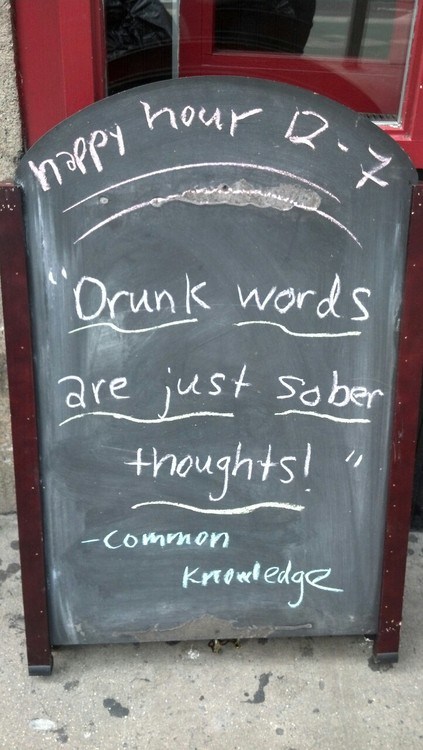 happy hour 12-7
"Drunk words
are just sober
thoughts!"
-common
knowledge